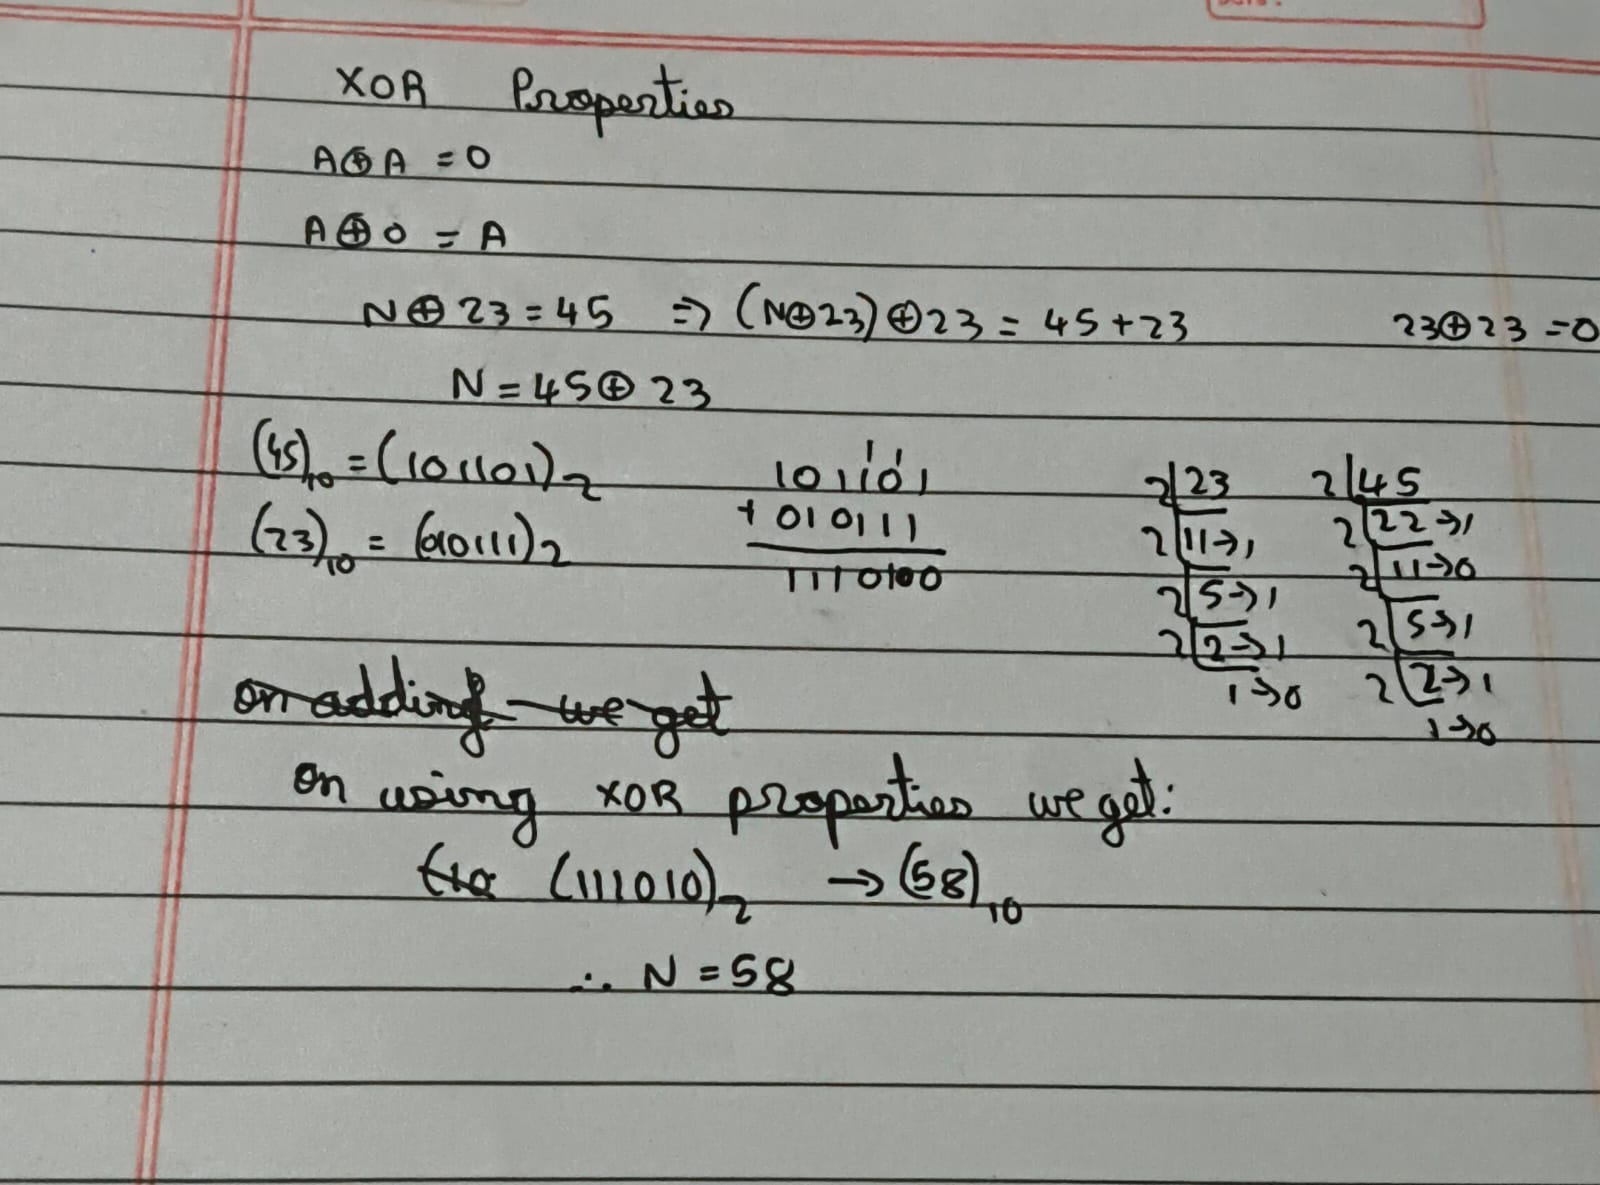 XOR Properties
A⊕A = 0
A⊕0 = A
N⊕23 = 45 ⇒ (N⊕23)⊕23 = 45+23 23⊕23 = 0
N = 45⊕23
(45)10 = (101101)2
(23)10 = (010111)2
101101
+ 010111
1110100
2|23
2|11→1
2|5→1
2|2→1
1→0
2|45
2|22→1
2|11→0
2|5→1
2|2→1
1→0
on adding we get
on using XOR properties we get:
(111010)2 → (58)10
∴ N = 58